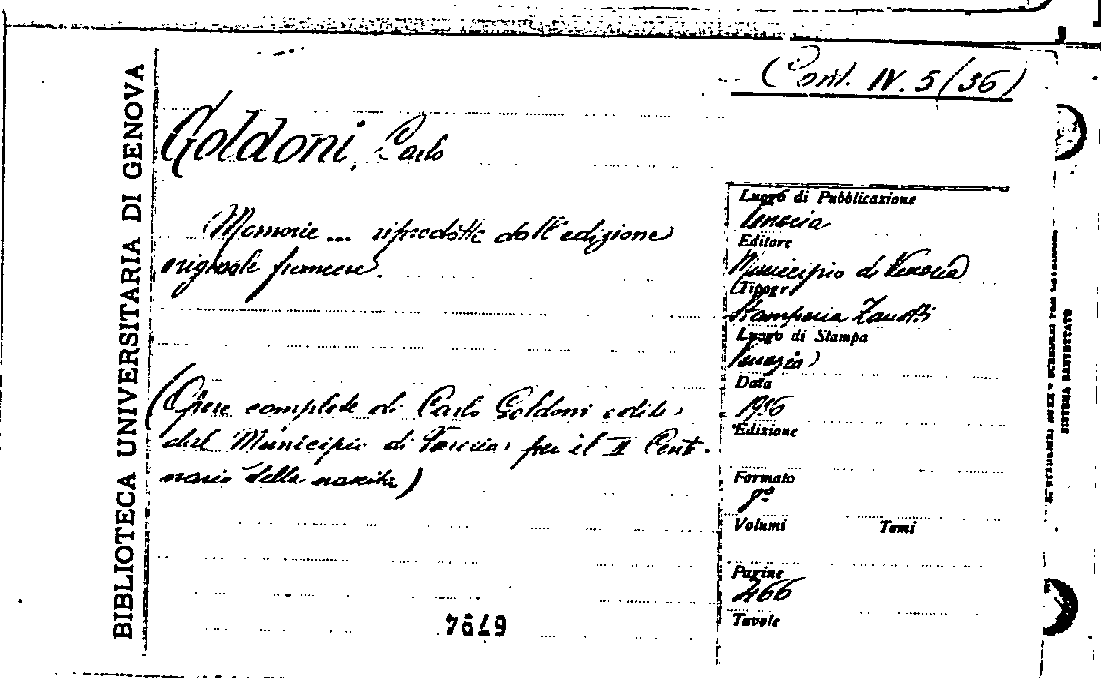 BIBLIOTECA UNIVERSITARIA DI GENOVA
(Cont. IV. 5/36)
Goldoni, Carlo
Memorie ... riprodotte dall'edizione
originale francese.
(Opere complete di Carlo Goldoni edite
dal Municipio di Venezia per il II Cent-
nario della nascita)
7649
Luogo di Pubblicazione
Venezia
Editore
Municipio di Venezia
(Tipogr)
Stamperia Zanetti
Luogo di Stampa
Venezia
Data
1936
Edizione
Formato
8°
Volumi Tomi
Pagine
466
Tavole
SISTEMA BREVETTATO